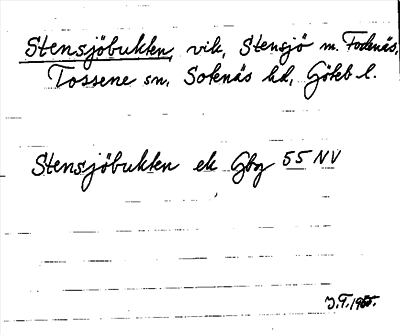 Stensjöbukten, vik, Stensjö m. Fodenäs,
Tossene sn, Sotenäs hd, Göteb l.
Stensjöbukten ek Gbg 55 NV
J.T. 1955.